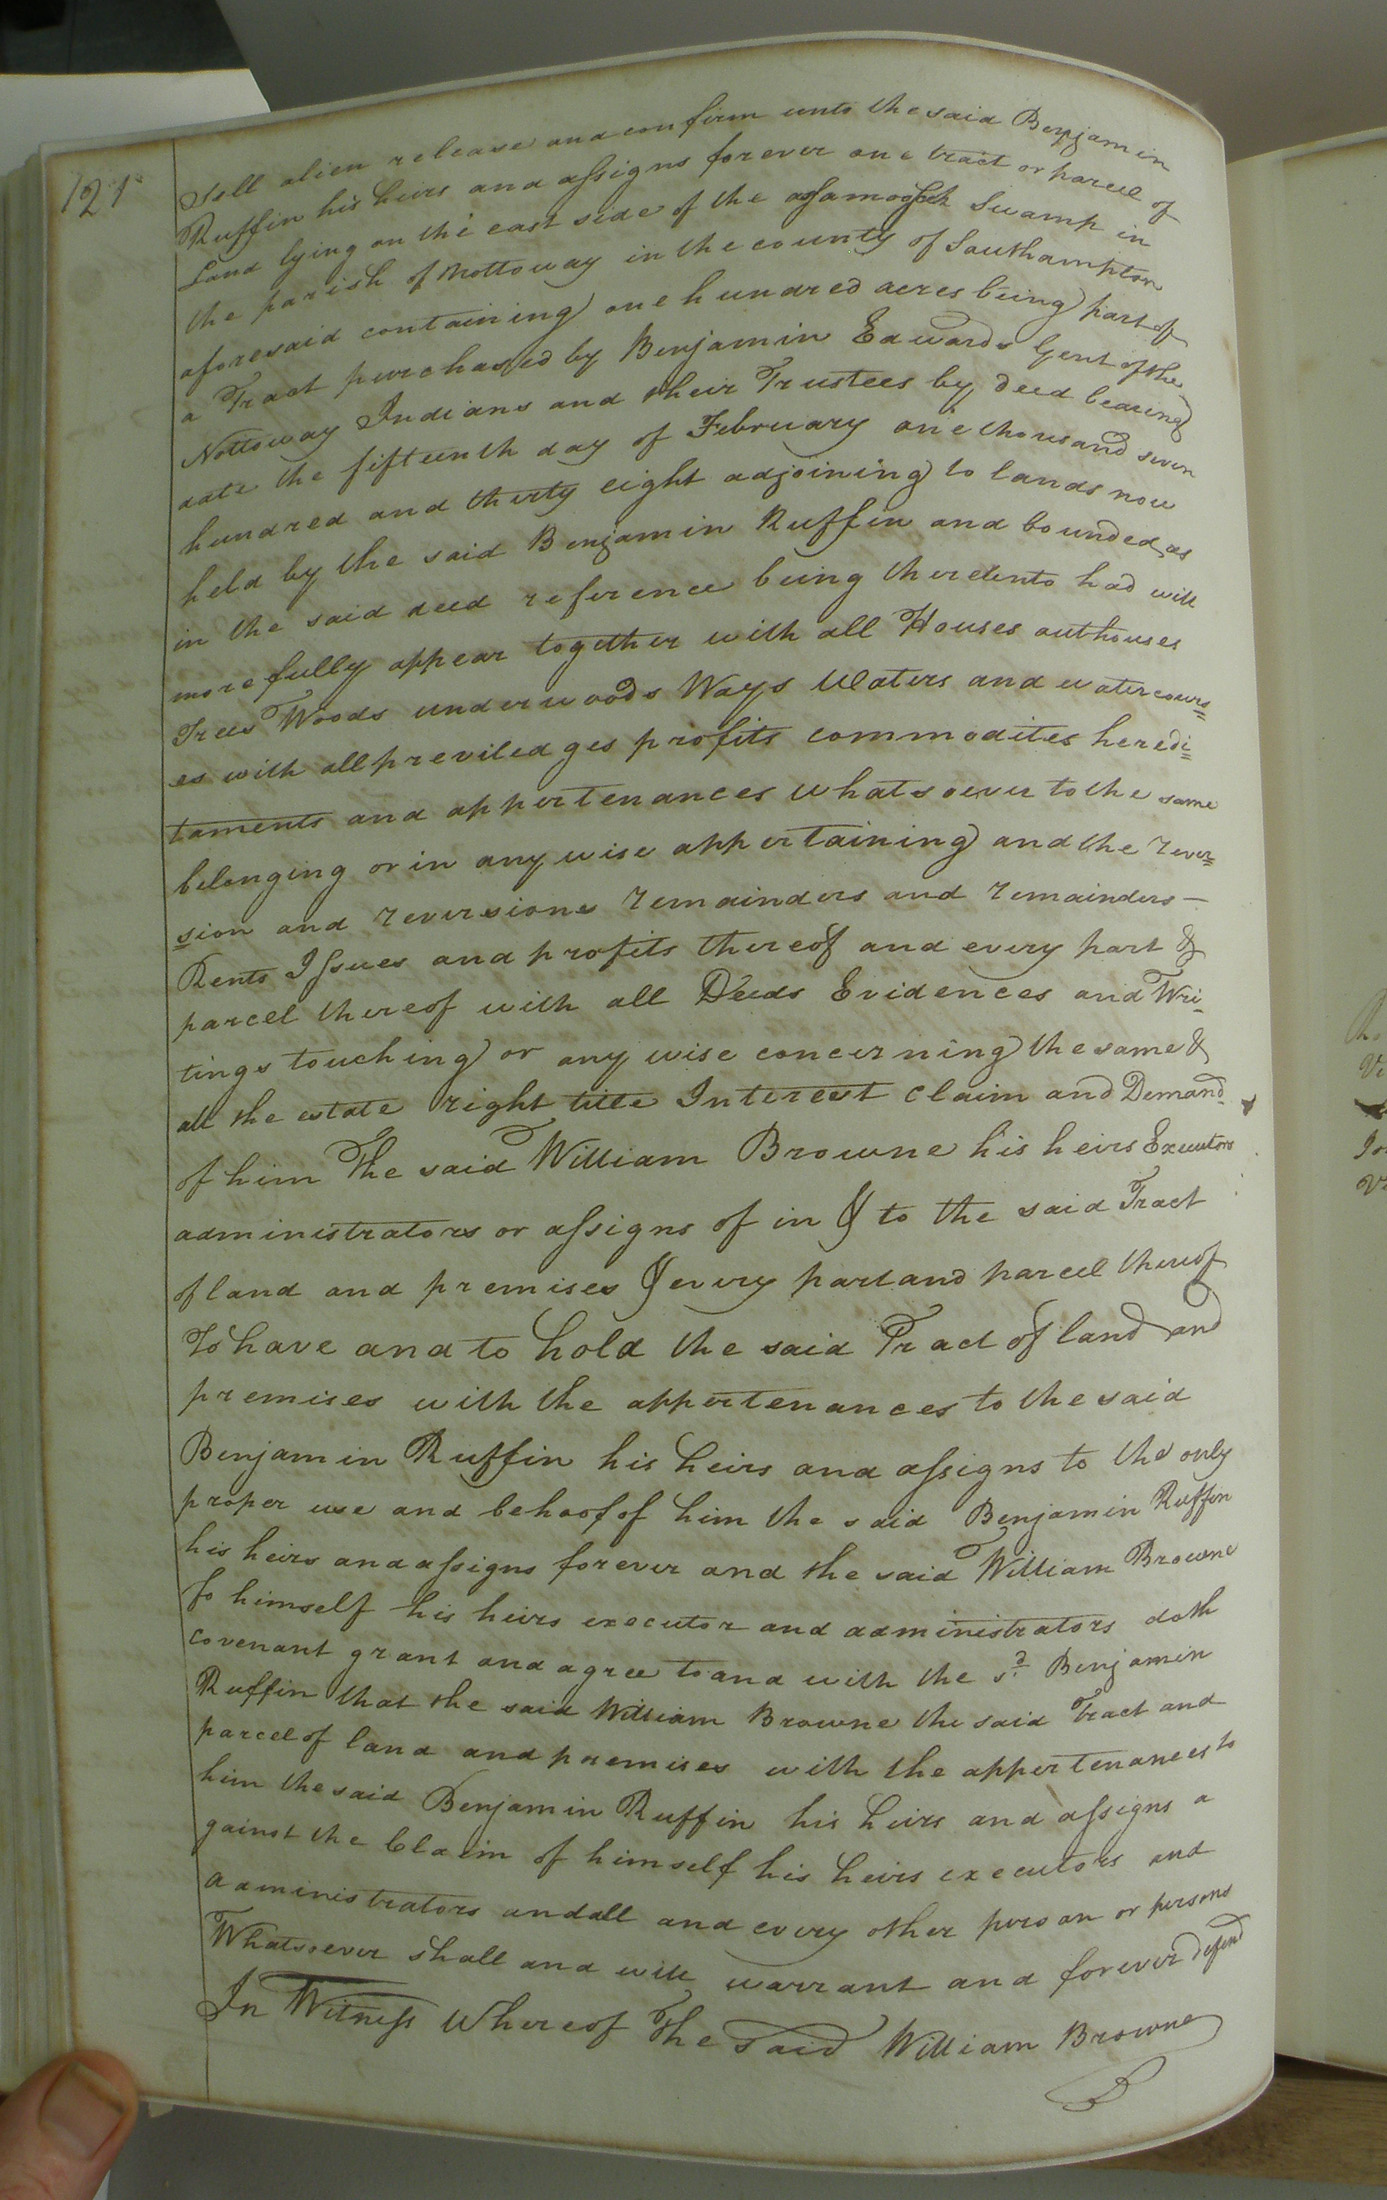 121
Sell alien release and confirm unto the said Benjamin
Ruffin his heirs and assigns forever one tract or parcel of
Land lying on the east side of the assamoosock Swamp in
the parish of Nottoway in the county of Southampton
aforesaid containing one hundred acres being part of
a Tract purchased by Benjamin Edwards Gent of the
Nottoway Indians and their Trustees by deed bearing
date the fifteenth day of February one thousand seven
hundred and thirty eight adjoining to lands now
held by the said Benjamin Ruffin and bounded as
in the said deed reference being thereunto had will
more fully appear together with all Houses outhouses
Trees Woods underwoods Ways Waters and watercours=
es with all previledges profits commodites heredi=
taments and appertenances whatsoever to the same
belonging or in any wise appertaining and the rever=
sion and reversions remainders and remainders —
Rents Issues and profits thereof and every part &
parcel thereof with all Deeds Evidences and Wri-
tings touching or any wise concerning the same &
all the estate right title Interest claim and Demand
of him The said William Browne his heirs Executors
administrators or assigns of in & to the said Tract
of land and premises & every part and parcel thereof
To have and to hold the said Tract of land and
premises with the appertenances to the said
Benjamin Ruffin his heirs and assigns to the only
proper use and behoof of him the said Benjamin Ruffin
his heirs and assigns forever and the said William Browne
fo himself his heirs executor and administrators doth
covenant grant and agree to and with the sd. Benjamin
Ruffin that the said William Browne the said Tract and
parcel of land and premises with the appertenances to
him the said Benjamin Ruffin his heirs and assigns a
gainst the Claim of himself his heirs executors and
administrators and all and every other person or persons
Whatsoever shall and will warrant and forever defend
In Witness Whereof The said William Browne